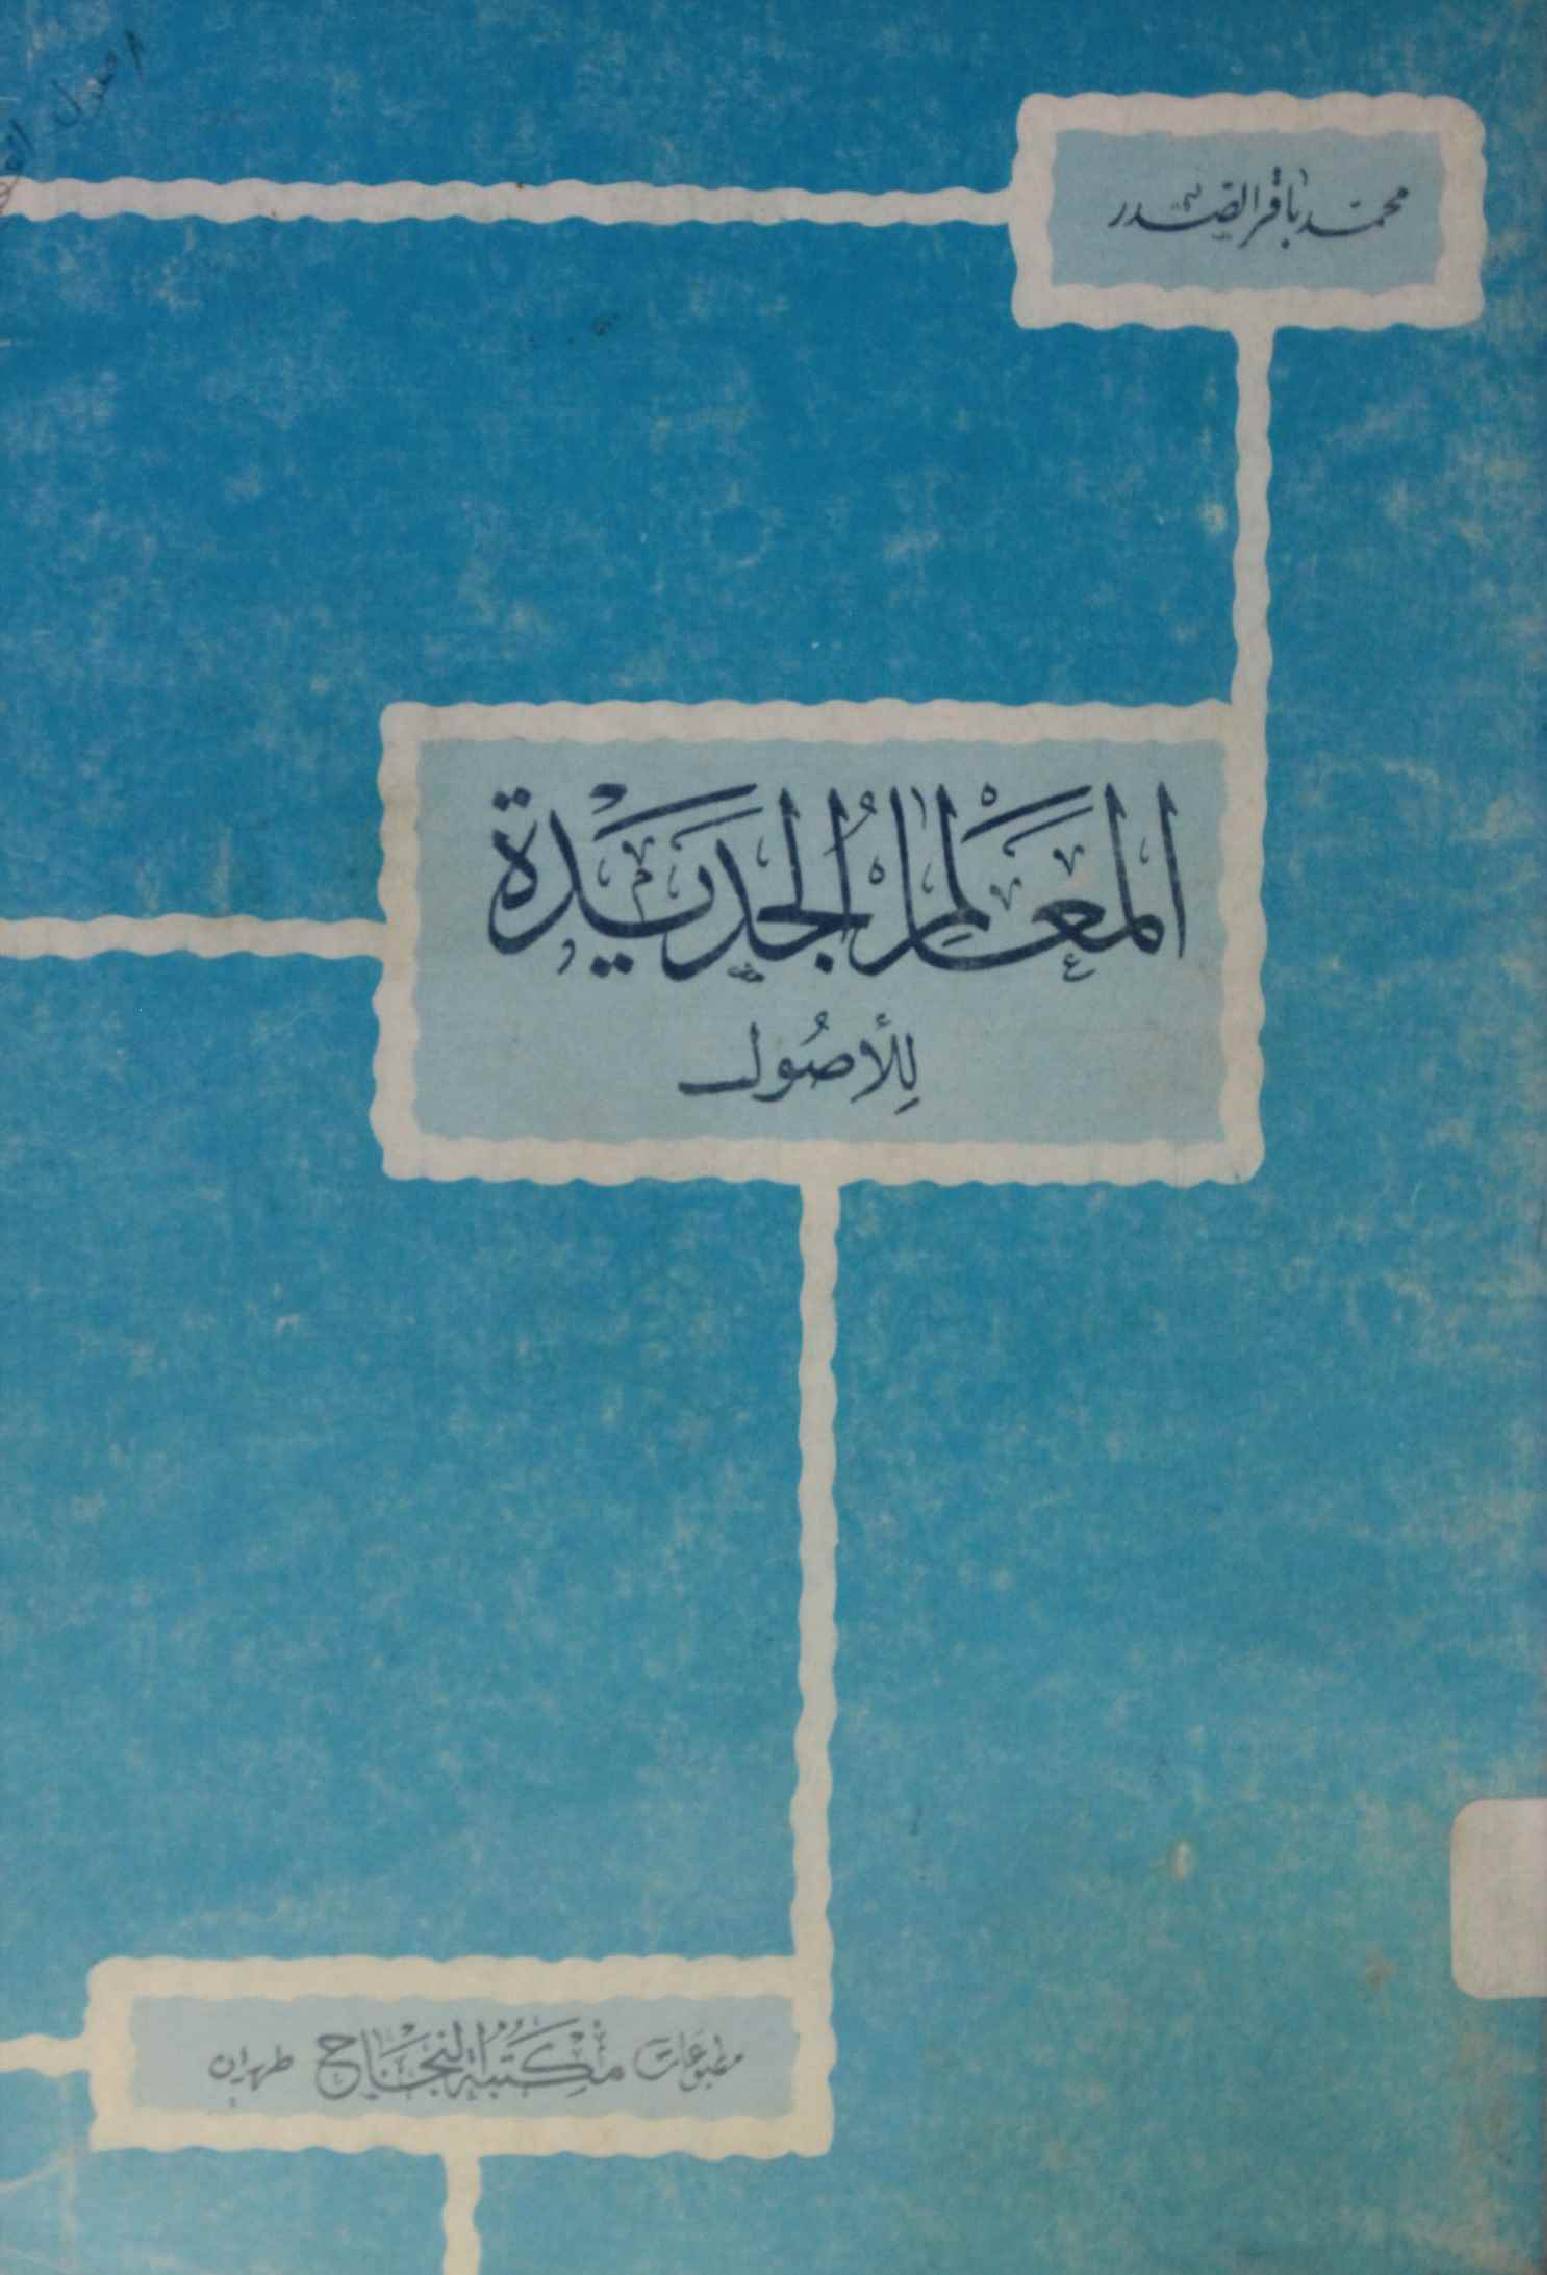 محمد باقر الصدر
المعالم الجديدة
للأصول
مطبوعات مكتبة النجاح طهران
اصول